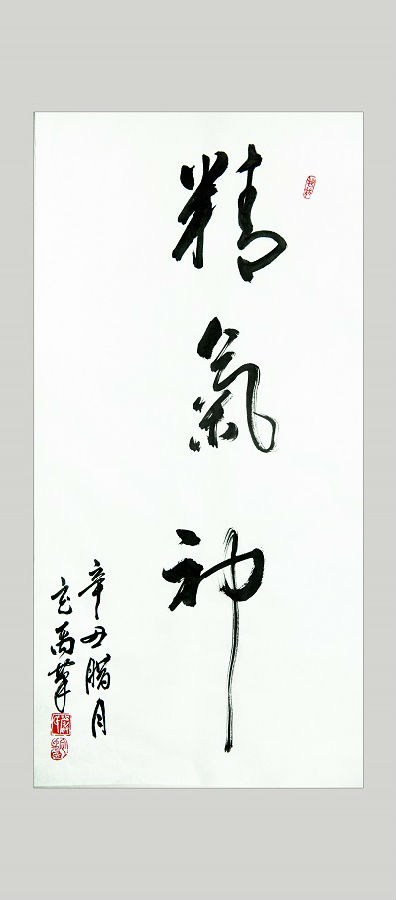 精氣神
辛丑腊月
玄禹笔